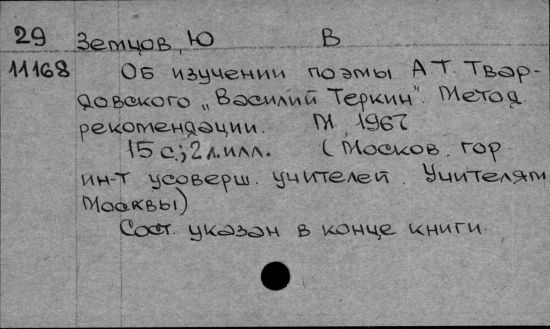 29 Земцов, Ю В
11168 Об изучении поэмы А.Т. Твар-
довского „Василий Теркин". Метод.
рекомендации. М, 1967
15 с.; 2 л. илл. (Москов. гор.
ин-т усоверш. учителей. Учителям
Москвы)
Сост. указан в конце книги.